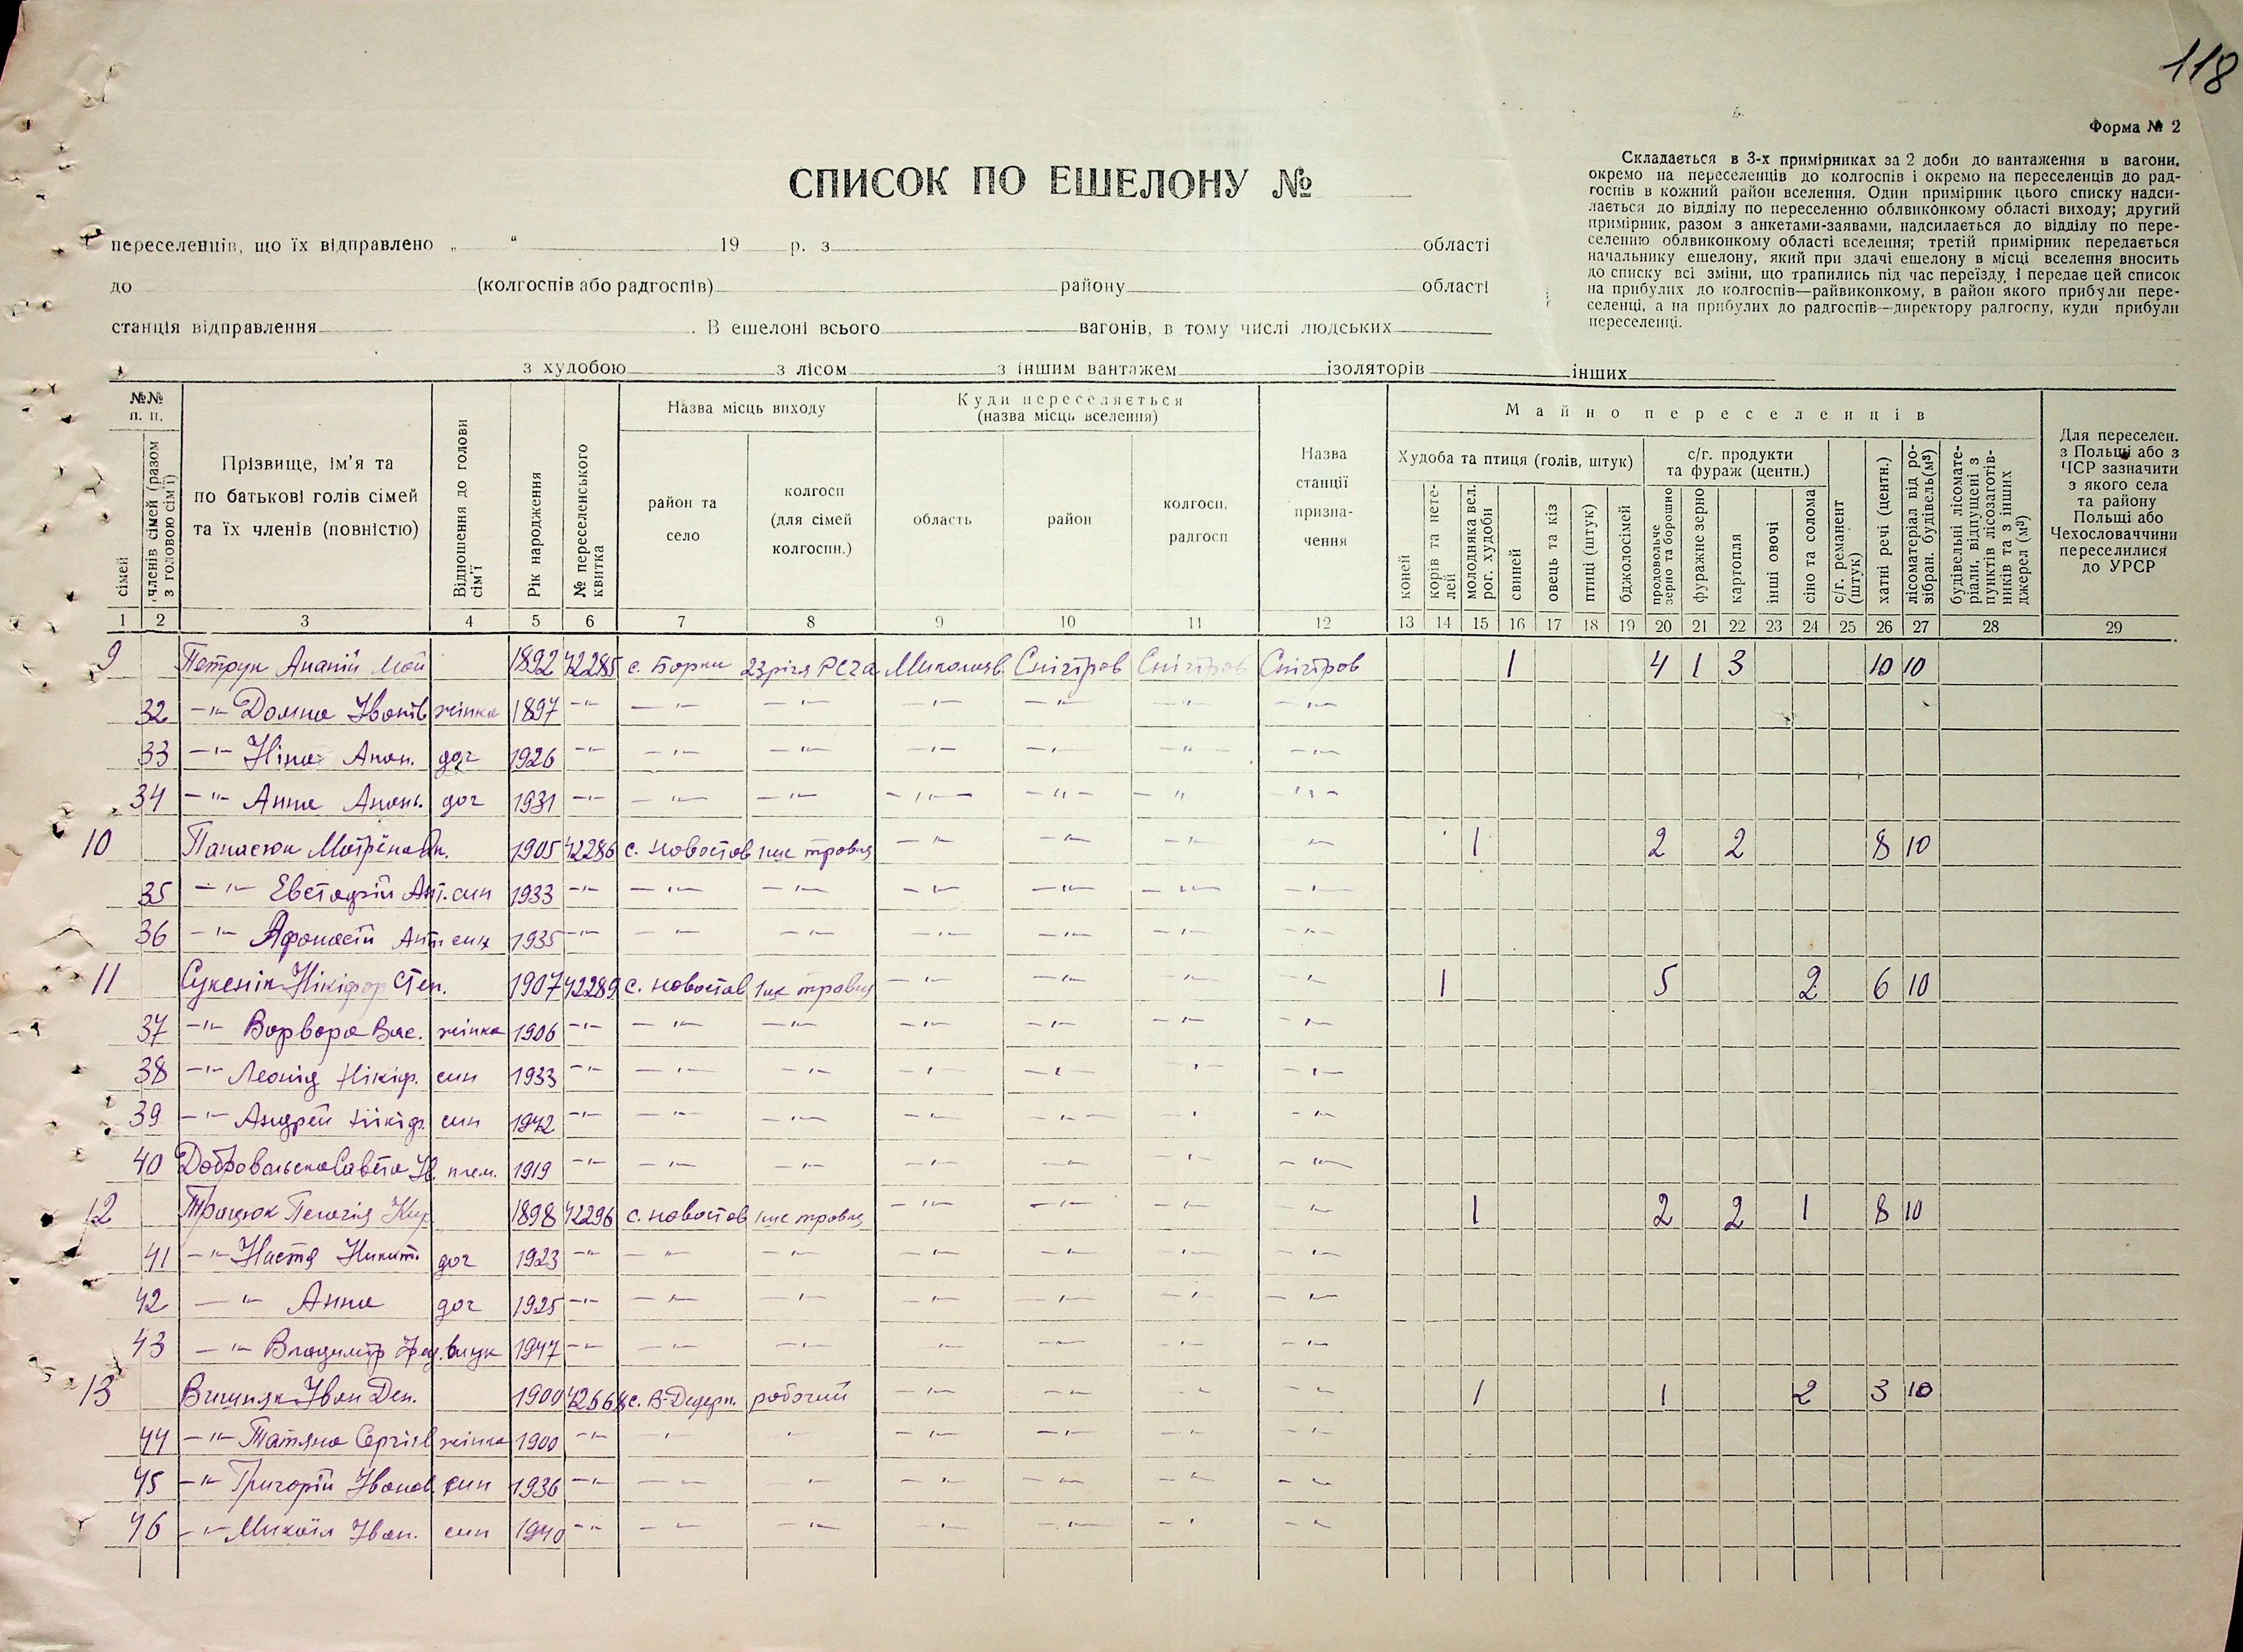 118
Форма № 2
СПИСОК ПО ЕШЕЛОНУ №
Складається в 3-х примірниках за 2 доби до вантаження в вагони,
окремо на переселенців до колгоспів і окремо на переселенців до рад-
госпів в кожний район вселення. Один примірник цього списку надси-
лається до відділу по переселенню облвиконкому області виходу; другий
примірник, разом з анкетами-заявами, надсилається до відділу по пере-
селенню облвиконкому області вселення; третій примірник передається
начальнику ешелону, який при здачі ешелону в місці вселення вносить
до списку всі зміни, що трапились під час переїзду, і передає цей список
на прибулих до колгоспів—райвиконкому, в район якого прибули пере-
селенці, а на прибулих до радгоспів—директору радгоспу, куди прибули
переселенці.
переселенців, що їх відправлено „ “ 19 р. з області
до (колгоспів або радгоспів) району області
станція відправлення . В ешелоні всього вагонів, в тому числі людських
з худобою з лісом з іншим вантажем ізоляторів інших
№№ п. п.
сімей
членів сімей (разом з головою сім'ї)
Прізвище, ім'я та по батькові голів сімей та їх членів (повністю)
Відношення до голови сім'ї
Рік народження
№ переселенського квитка
Назва місць виходу
район та село
колгосп (для сімей колгоспн.)
Куди переселяється (назва місць вселення)
область
район
колгосп, радгосп
Назва станції призна-чення
Майно переселенців
Худоба та птиця (голів, штук)
коней
корів та нете-лей
молодняка вел. рог. худоби
свиней
овець та кіз
птиці (штук)
бджолосімей
с/г. продукти та фураж (центн.)
продовольче зерно та борошно
фуражне зерно
картопля
інші овочі
сіно та солома
с/г. реманент (штук)
хатні речі (центн.)
лісоматеріал від ро-зібран. будівель(м³)
будівельні лісомате-ріали, відпущені з пунктів лісозаготів-ників та з інших джерел (м³)
Для переселен. з Польщі або з ЧСР зазначити з якого села та району Польщі або Чехословаччини переселилися до УРСР
1 2 3 4 5 6 7 8 9 10 11 12 13 14 15 16 17 18 19 20 21 22 23 24 25 26 27 28 29
9 Петрук Ананій 1892 42285 с. Борки Миколаїв. Снігтров Снігтров Снігтров 1 4 1 3 10 10
32 -"- Домна Іванів жінка 1897 -"- -"- -"- -"- -"- -"- -"-
33 -"- Ніна Анан. доч 1926 -"- -"- -"- -"- -"- -"- -"-
34 -"- Анна Анань. доч 1931 -"- -"- -"- -"- -"- -"- -"-
10 Панасюк Мотрёна 1905 42286 с. Новостав 1ше травня -"- -"- -"- -"- 1 2 2 8 10
35 -"- Евстафій Ант. син 1933 -"- -"- -"- -"- -"- -"- -"-
36 -"- Афонасій Ант. син 1935 -"- -"- -"- -"- -"- -"- -"-
11 Сукенік Нікіфор Степ. 1907 42289 с. Новостав 1ше травня -"- -"- -"- -"- 1 5 2 6 10
37 -"- Ворвора Вас. жінка 1906 -"- -"- -"- -"- -"- -"- -"-
38 -"- Леонід Нікіф. син 1933 -"- -"- -"- -"- -"- -"- -"-
39 -"- Андрей Нікіф. син 1942 -"- -"- -"- -"- -"- -"- -"-
40 Добровольська Савета Ів. плем. 1919 -"- -"- -"- -"- -"- -"- -"-
12 Трацюк Пелагія 1898 42296 с. Новостав 1ше травня -"- -"- -"- -"- 1 2 2 1 8 10
41 -"- Настя Никит. доч 1923 -"- -"- -"- -"- -"- -"- -"-
42 -"- Анна доч 1925 -"- -"- -"- -"- -"- -"- -"-
43 -"- Владимір внук 1947 -"- -"- -"- -"- -"- -"- -"-
13 Іван Ден. 1900 с. В-Дедерк. робочий -"- -"- -"- -"- 1 1 2 3 10
44 -"- Татяна Сергіїв жінка 1900 -"- -"- -"- -"- -"- -"- -"-
45 -"- Григорій Іванов. син 1936 -"- -"- -"- -"- -"- -"- -"-
46 -"- Михаїл Іван. син 1940 -"- -"- -"- -"- -"- -"- -"-